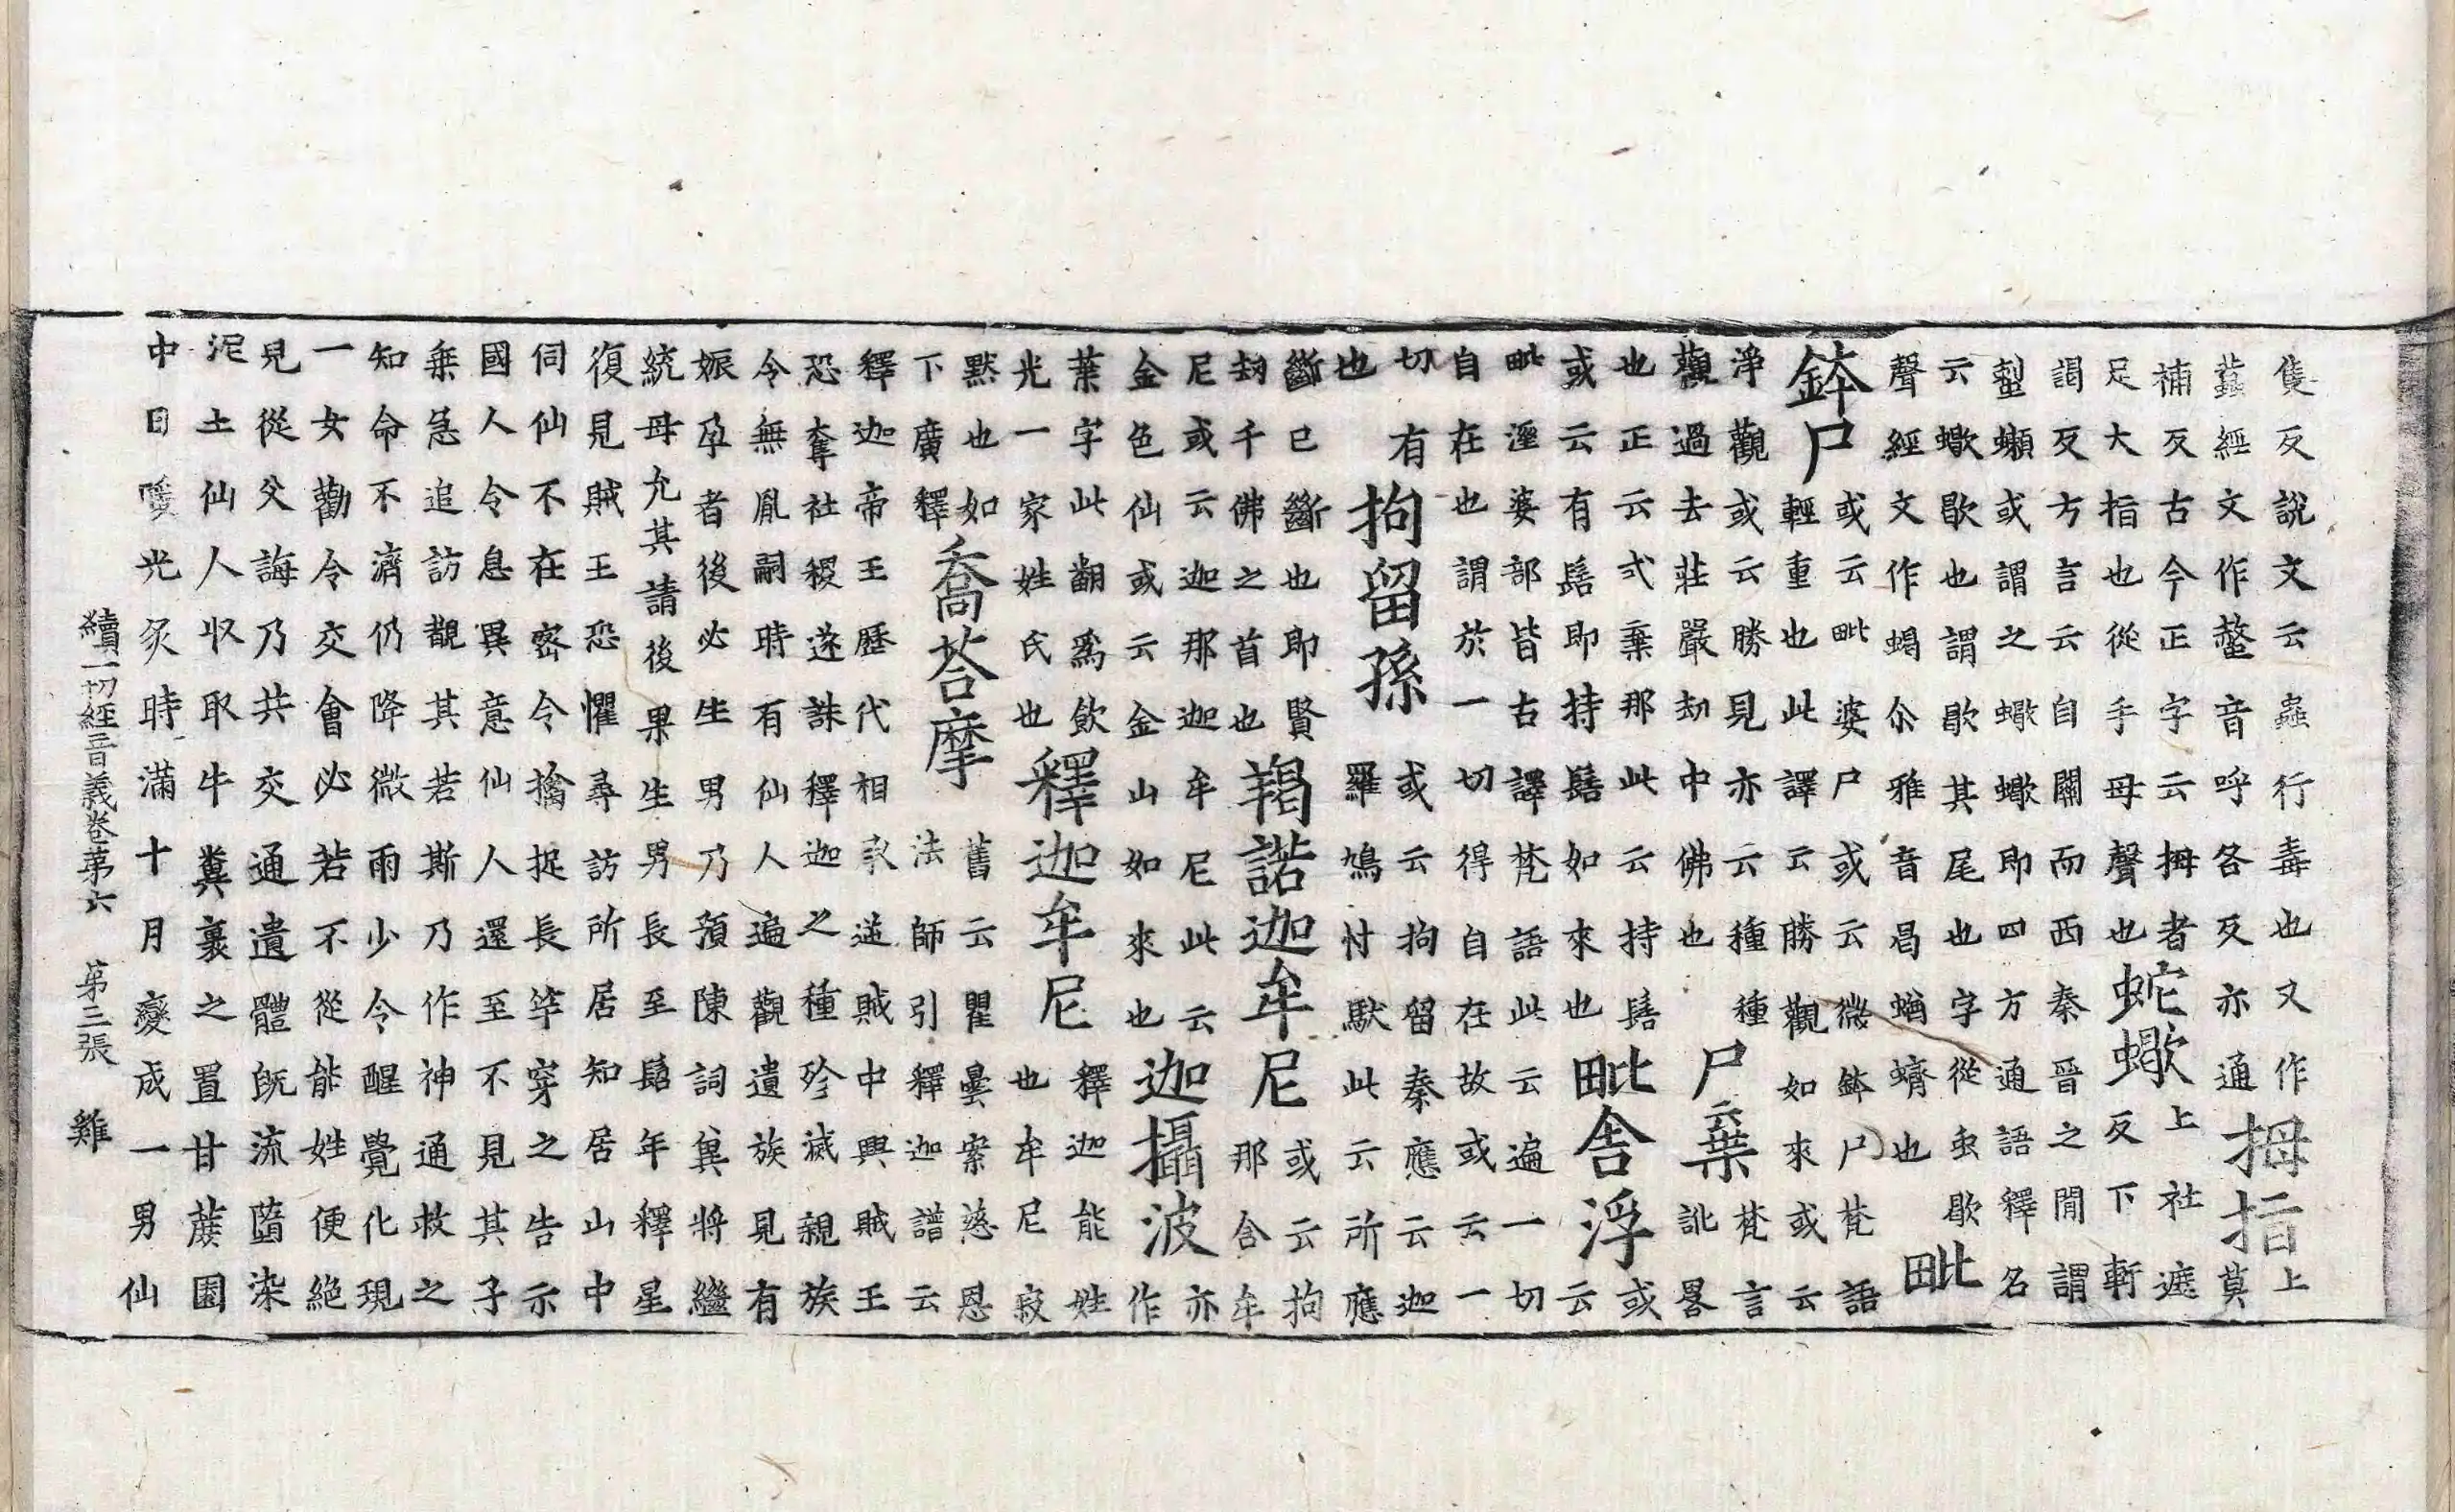 隻反說文云蟲行毒也又作
蠚經文作蠚音呼各反亦通
拇指
上
莫
補反古今正字云拇者
足大指也從手母聲也
蛇蠍
上社遮
反下軒
謁反方言云自關而西秦晉之間謂
蝲或謂之蠍蠍即四方通語釋名
云蠍歇也謂歇其尾也字從虫歇
聲經文作蝎尒雅音曷蝤蠐也
毗
鉢尸
或云毗婆尸或云微鉢尸梵語
輕重也此譯云勝觀如來或云
淨觀或云勝見亦云種種
觀過去莊嚴劫中佛也
尸棄
梵言
訛畧
也正云式棄那此云持髻
或云有髻即持髻如來也
毗舍浮
或
云
毗溼婆部皆古譯梵語此云遍一切
自在也謂於一切得自在故或云一
切有
也
拘留孫
或云拘留秦應云迦
羅鳩忖馱此云所應
斷已斷也即賢
劫千佛之首也
羯諾迦牟尼
或云拘
那含牟
尼或云迦那迦牟尼此云
金色仙或云金山如來也
迦攝波
亦
作
葉字此翻爲飲
光一家姓氏也
釋迦牟尼
釋迦能姓
也牟尼寂
默也如
下廣釋
喬荅摩
舊云瞿曇案慈恩
法師引釋迦譜云
釋迦帝王歷代相承逆賊中興賊王
恐奪社稷遂誅釋迦之種殄滅親族
令無胤嗣時有仙人遍觀遺族見有
娠孕者後必生男乃預陳詞兾將繼
統母允其請後果生男長至髫年釋星
復見賊王恐懼尋訪所居知居山中
伺仙不在密令擒捉長竿穿之告示
國人令息異意仙人還至不見其子
乘急追訪覩其若斯乃作神通救之
知命不濟仍降微雨少令醒覺化現
一女勸令交會必若不從能姓便絕
見從父誨乃共交通遺體旣流墮染
泥土仙人收取牛糞裹之置甘蔗園
中日暖光炙時滿十月變成一男仙
續一切經音義卷第六 第三張 雞